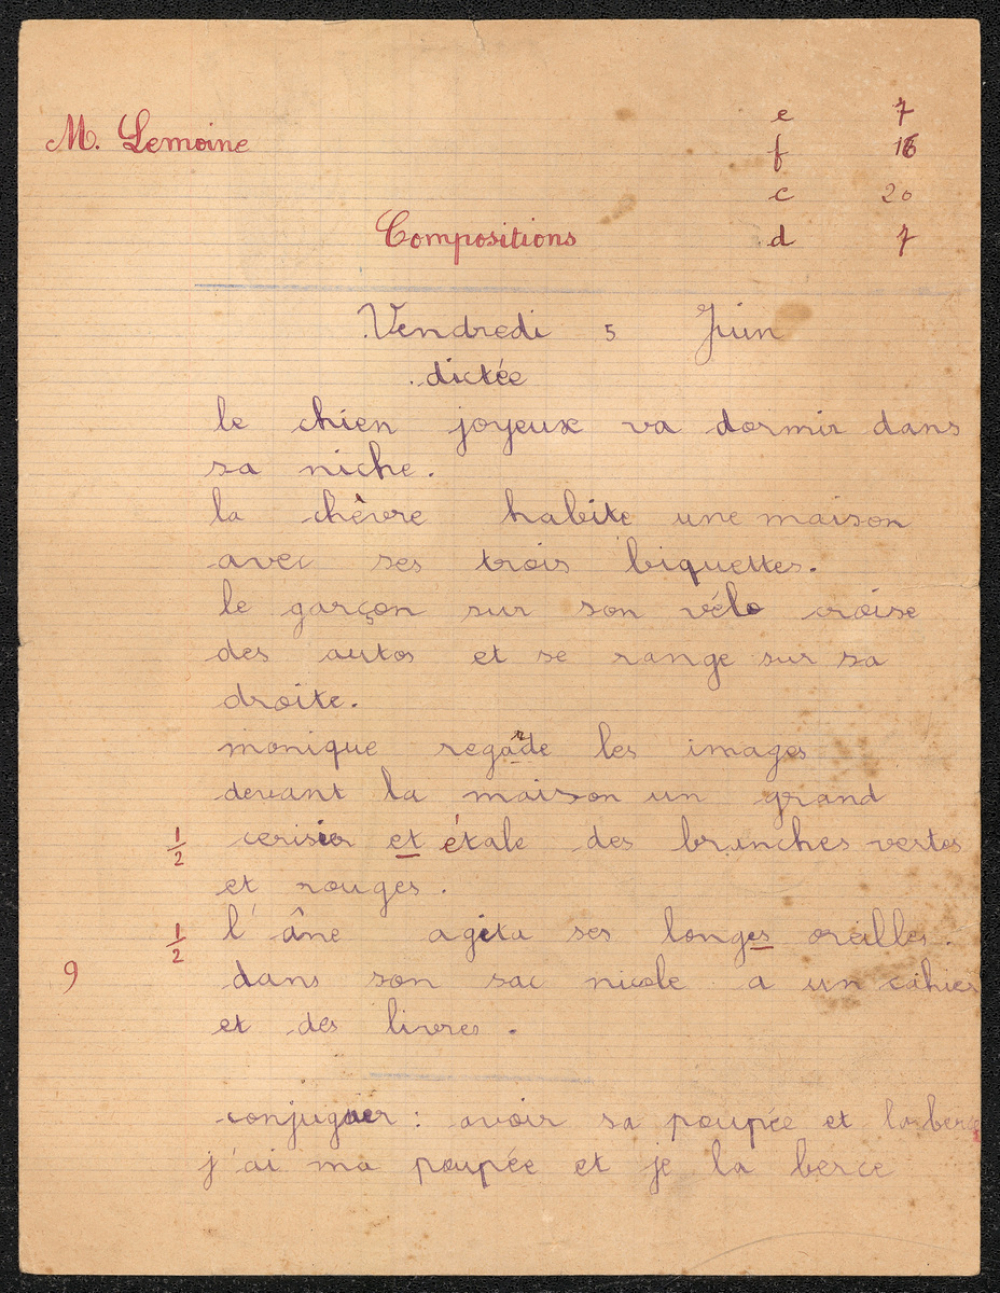 M. Lemoine
e 7
f 16
c 20
Compositions d 7
Vendredi 5 Juin
dictée
le chien joyeux va dormir dans
sa niche.
la chèvre habite une maison
avec ses trois biquettes.
le garçon sur son vélo croise
des autos et se range sur sa
droite.
monique regarde les images
devant la maison un grand
1/2 cerisier et étale des branches vertes
et rouges.
1/2 l'âne agita ses longes oreilles.
9 dans son sac nicole a un cahier
et des livres.
conjuguer : avoir sa poupée et la berce
j'ai ma poupée et je la berce